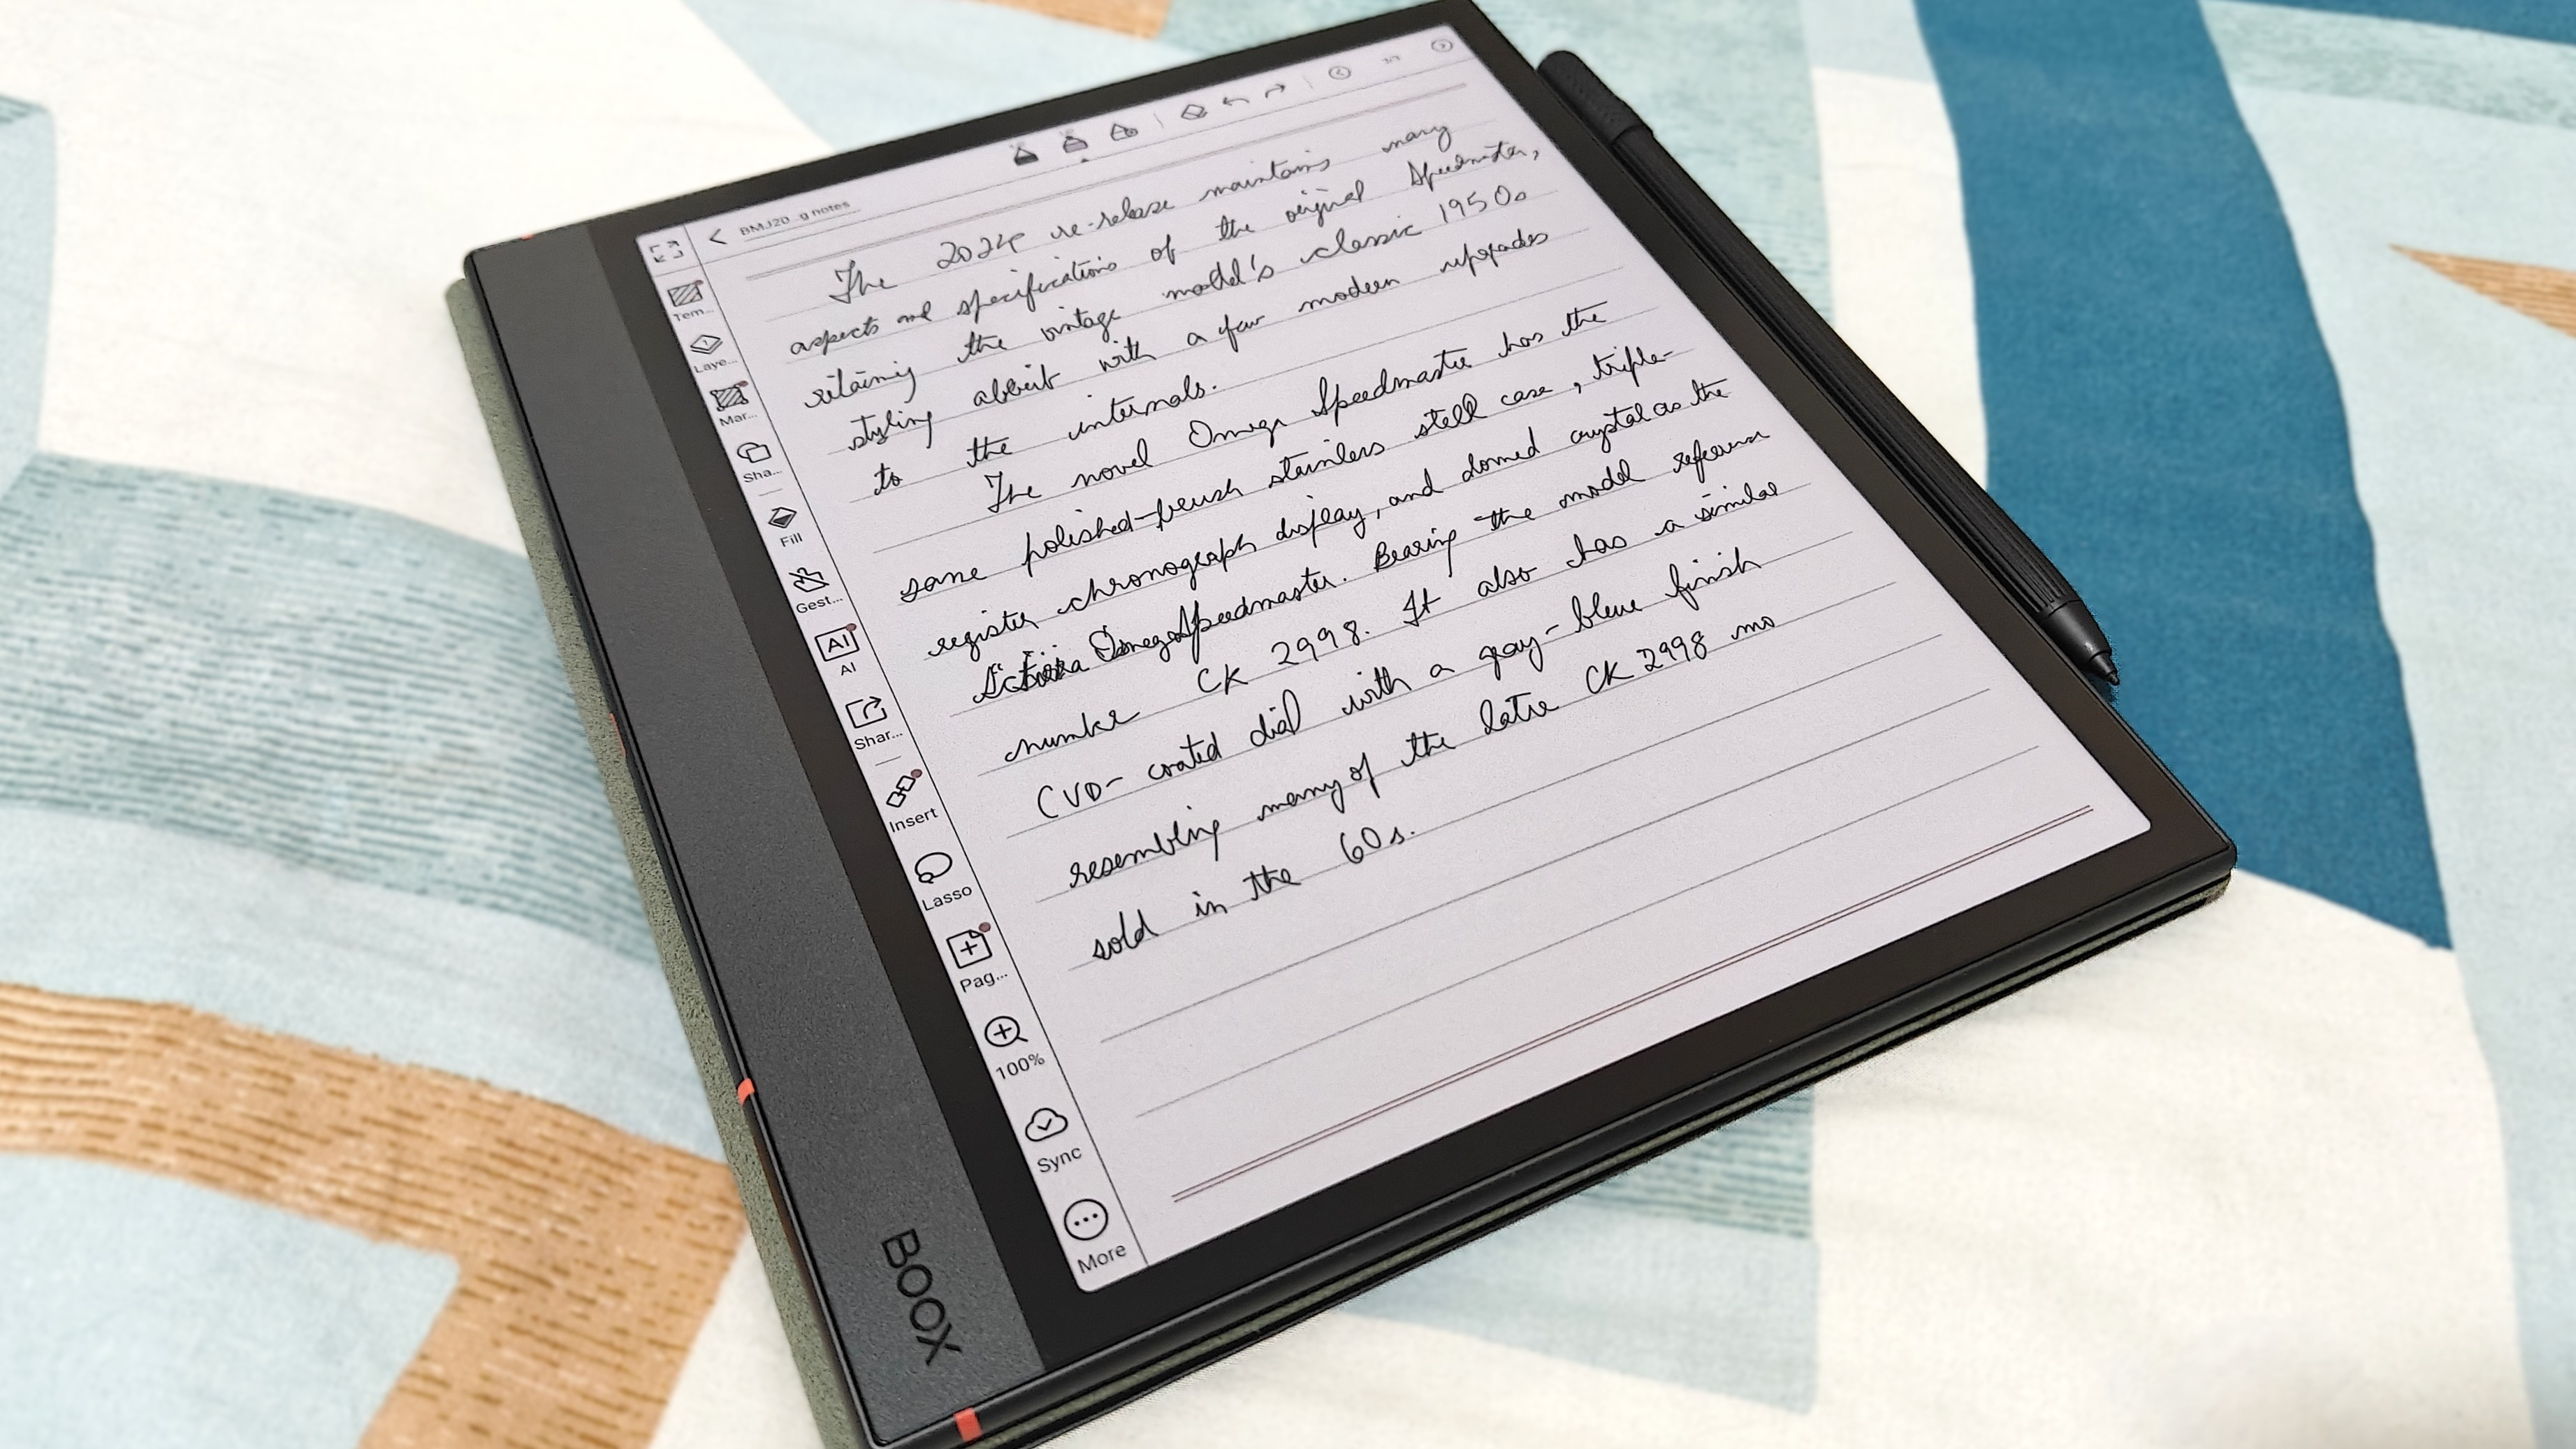 BMJ20...g notes
The 2024 re-release maintains many
aspects and specifications of the original Speedmaster,
retaining the vintage model's classic 1950s
styling albeit with a few modern upgrades
to the internals.
The novel Omega Speedmaster has the
same polished-brush stainless stell case, triple-
register chronograph display, and domed crystal as the
Omega Speedmaster. Bearing the model reference
number CK 2998. It also has a similar
CVD-coated dial with a gray-blue finish
resembling many of the late CK 2998 mo
sold in the 60s.
Tem...
Laye...
Mar...
Sha...
Fill
Gest...
AI
AI
Shar...
Insert
Lasso
Pag...
100%
Sync
More
BOOX